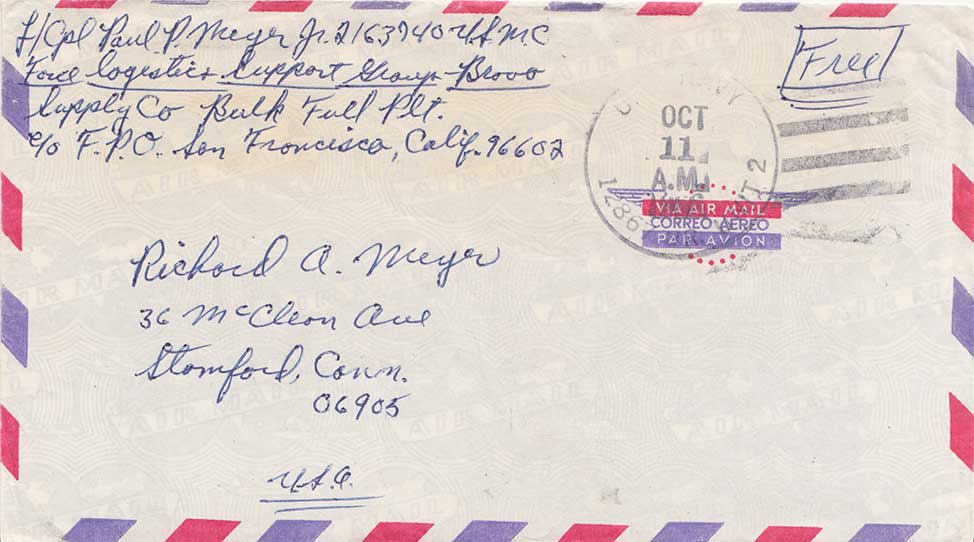 L/Cpl Paul P. Meyer Jr. 2163740 U.S.M.C
Force Logestics Support Group-Bravo
Supply Co Bulk Fuel Plt.
c/o F.P.O. San Francisco, Calif. 96602
Free
OCT
11
A.M.
VIA AIR MAIL
CORREO AEREO
PAR AVION
Richard A. Meyer
36 McClean Ave
Stamford, Conn.
06905
U.S.A.